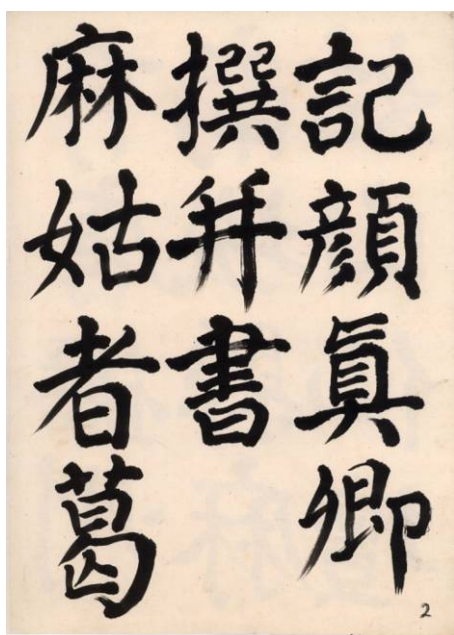 記顔真卿
撰并書
麻姑者葛
2